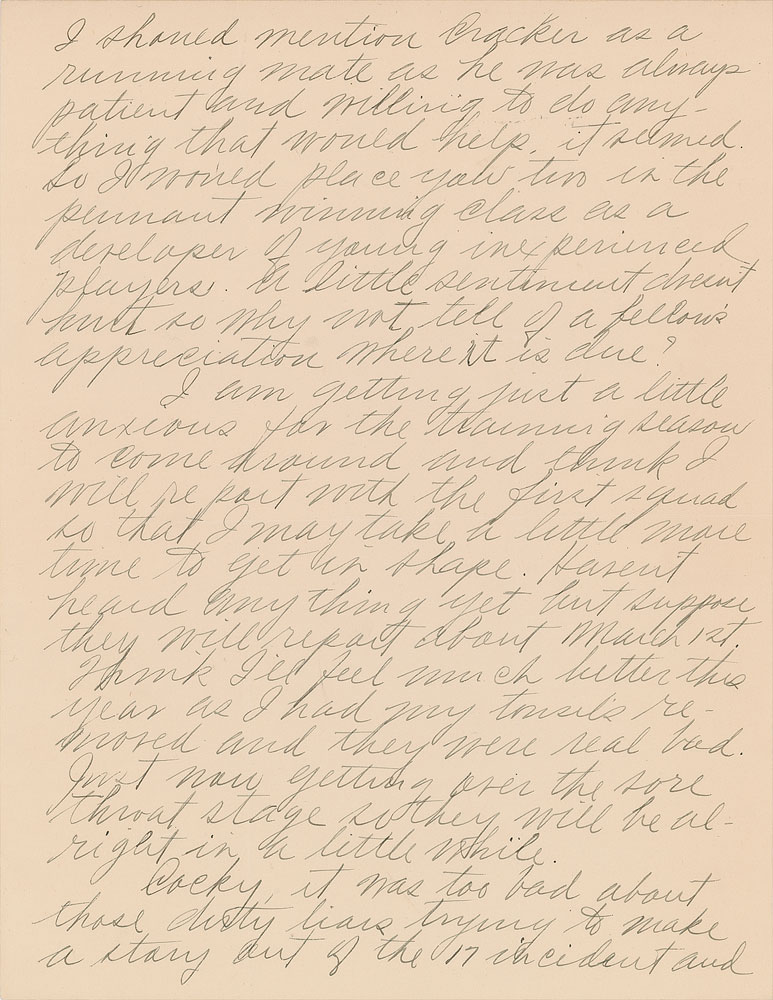 I should mention Cracker as a
running mate as he was always
patient and willing to do any-
thing that would help, it seemed.
So I would place you two in the
pennant winning class as a
developer of young inexperienced
players. A little sentiment doesn't
hurt so why not tell of a fellow's
appreciation where it is due?
I am getting just a little
anxious for the training season
to come around and think I
will report with the first squad
so that I may take a little more
time to get in shape. Havent
heard anything yet but suppose
they will report about March 1st.
Think I'll feel much better this
year as I had my tonsils re-
moved and they were real bad.
Just now getting over the sore
throat stage so they will be al-
right in a little while.
Cocky, it was too bad about
those dirty liars trying to make
a story out of the 17 incident and